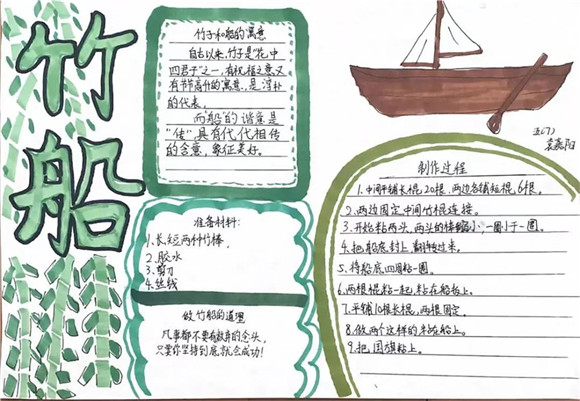 竹船
竹子和船的寓意
自古以来,竹子是“花中
四君子”之一,有祝福之意,又
有节高升的寓意,是淳朴
的代表。
而船的谐音是
“传”,具有代代相传
的含意,象征美好。
准备材料:
1.长、短两种竹棒。
2.胶水
3.剪刀
4.丝线
做竹船的道理
凡事都不要有放弃的念头,
只要你坚持到底就会成功!
五(7)
袁嘉阳
制作过程
1.中间平铺长棍,20根,两边各铺短棍,6根。
2.两边固定,中间竹棍连接。
3.开始粘两头,两头的棒缩小,一圈小于一圈。
4.把船底封上,翻转过来。
5.将船底四周粘一圈。
6.两根棍粘一起,粘在船板上。
7.平铺10根长棍,两根固定。
8.做两个这样的半粘在船上。
9.把国旗粘上。